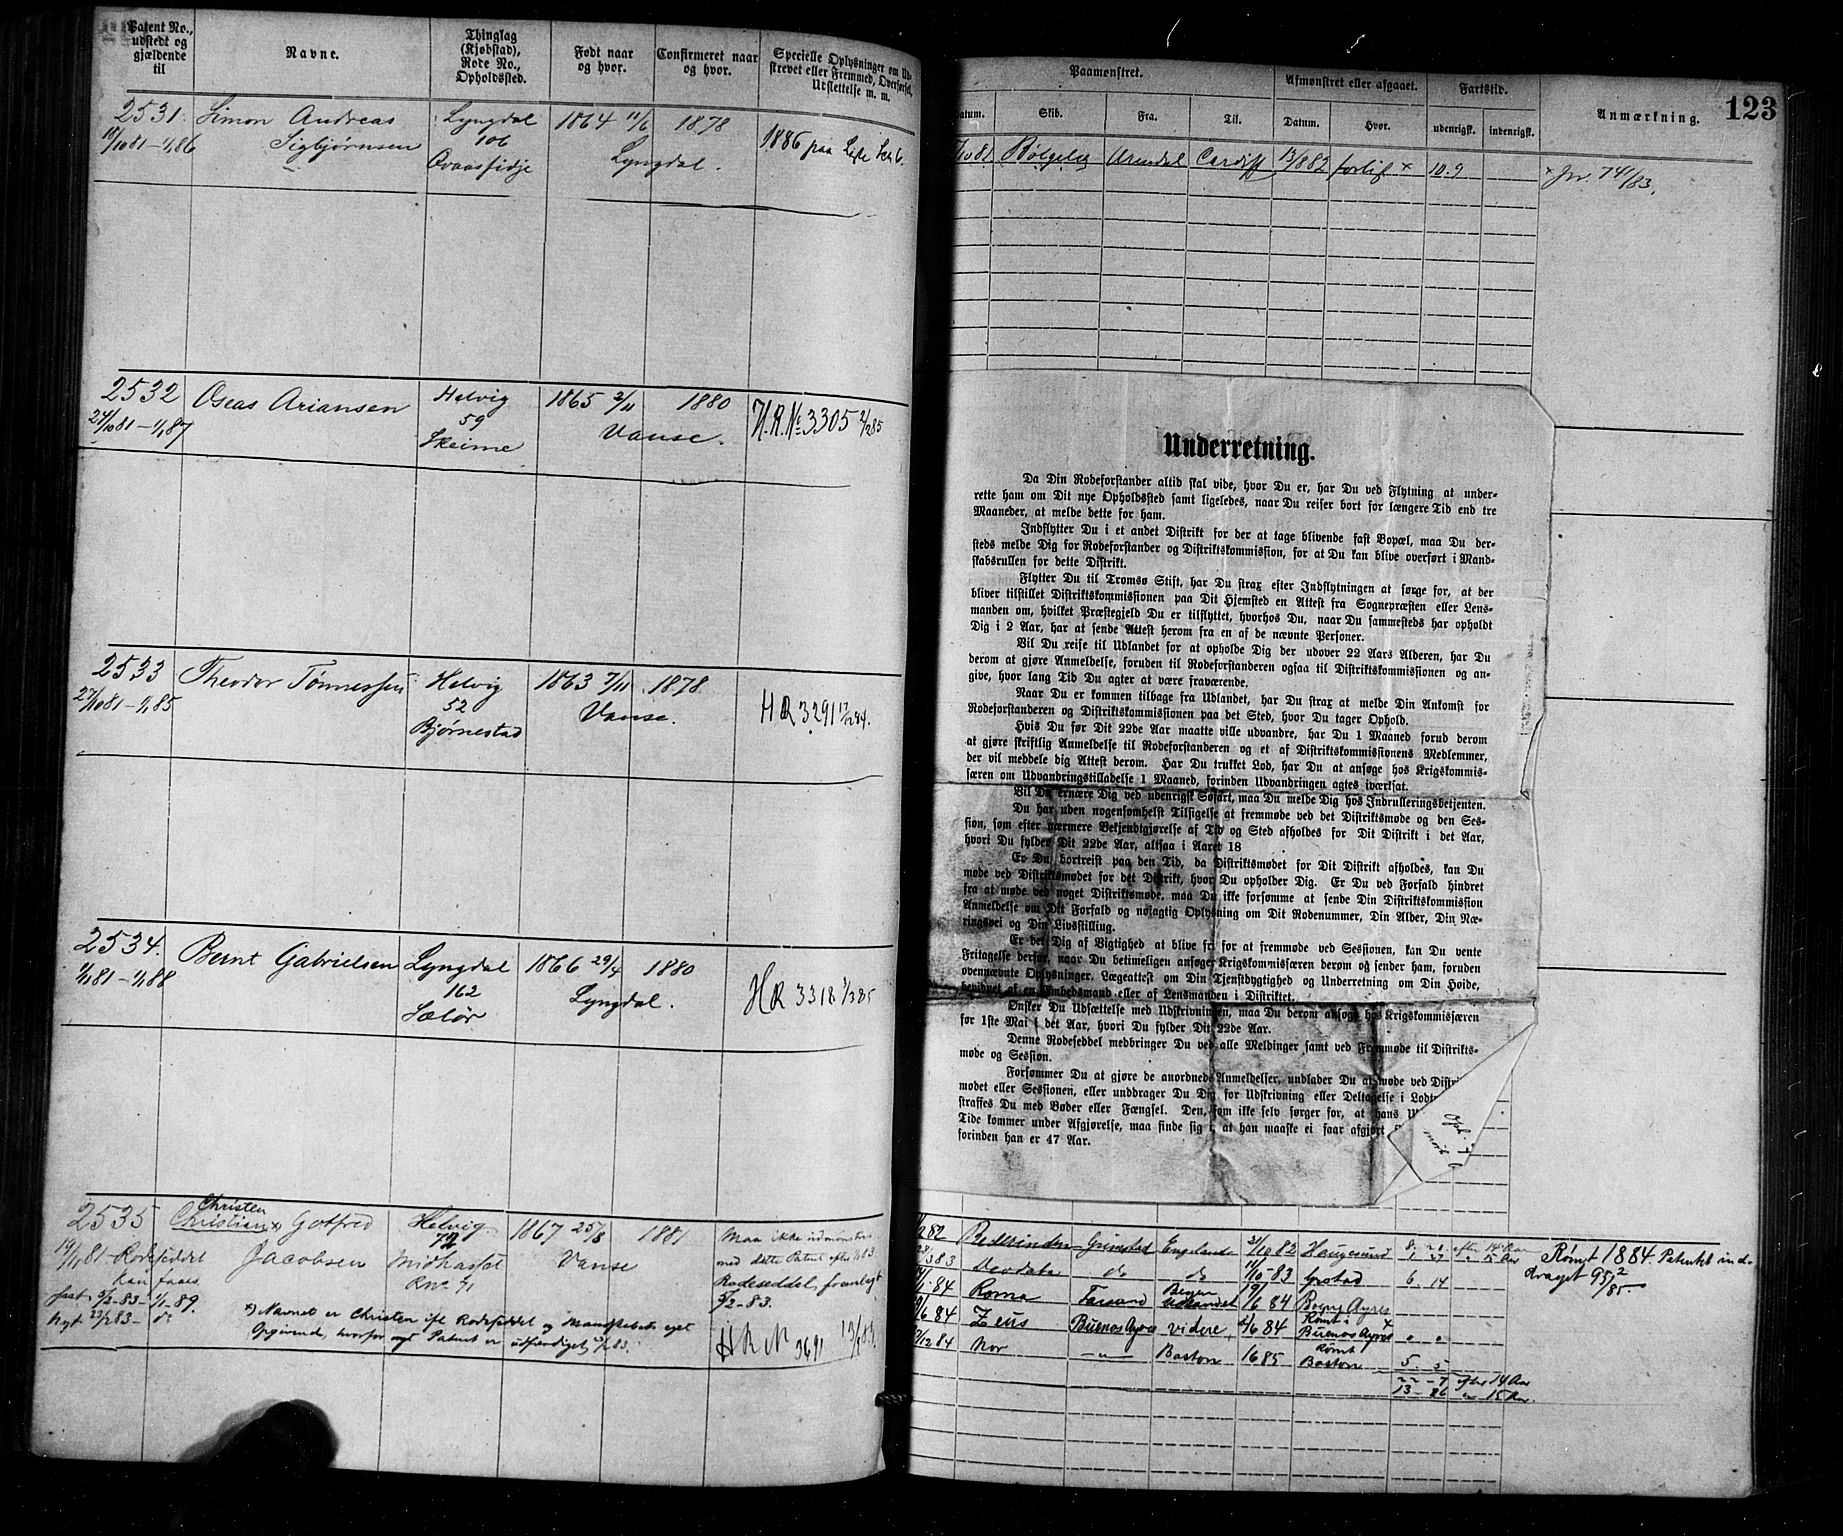 Patent No., udstedt og gjældende til
Navne.
Thinglag (Kjøbstad), Rode No., Opholdssted.
Født naar og hvor.
Confirmeret naar og hvor.
Specielle Oplysninger om Ud-
strevet eller Fremmed, Overførsel,
Udslettelse m. m.
2531. Simon Andreas Lyngdal 1864 11/6 1878
19/10 81 – 1/1 86 Sigbjørnsen 106 Lyngdal. 1886 paa
Qvaasfidje
2532 Oseas Ariansen Helvig 1865 2/11 1880 H.R. No 3305 2/2 85
27/10 81 – 1/1 87 59 Vanse.
Skeime
2533 Theodor Tønnessen Helvig 1863 7/11 1878
27/10 81 – 1/1 85 52 Vanse. HR 3291 17/12 84.
Bjørnestad
2534. Bernt Gabrielsen Lyngdal 1866 29/4 1880
1/11 81 – 1/1 88 162 Lyngdal. HR 3318 3/3 85
Sælør
Christen
2535 Christian x) Gotfred Helvig 1867 25/8 1881 Maa ikke udmønstres
19/11 81 – Rodeseddel Jacobsen 72 Vanse med dette Patent efter 1/1 83
kan faaes Midhassel Rodeseddel fremlagt
fast 5/2-83 – 1/1-89. 5/2-83.
x) Navnet er Christen ifl. Rodeseddel og Mandskabets eget
Nyt 23/2 83 – do Opgivende, hvorfor nyt Patent er udfærdiget
H R No 3691
Paamønstret.
Afmønstret eller afgaaet.
Fartstid.
Anmærkning.
123
Datum. Skib. Fra. Til. Datum. Hvor. udenrigsk. indenrigsk.
/10 81 Bølgelig Arendal Cardiff 13/8 82 forlis x 10.9 x Jnr. 741/83.
Underretning.
Da Din Rodeforstander altid skal vide, hvor Du er, har Du ved Flytning at under-
rette ham om Dit nye Opholdssted samt ligeledes, naar Du reiser bort for længere Tid end tre
Maaneder, at melde dette for ham.
Indflytter Du i et andet Distrikt for der at tage blivende fast Bopæl, maa Du der-
steds melde Dig for Rodeforstander og Distriktskommission, for at Du kan blive overført i Mand-
skabsrullen for dette Distrikt.
Flytter Du til Tromsø Stift, har Du strax efter Indflytningen at sørge for, at der
bliver tilstillet Distriktskommissionen paa Dit Hjemsted en Attest fra Sognepræsten eller Lens-
manden om, hvilket Præstegjeld Du er tilflyttet, hvorhos Du, naar Du sammesteds har opholdt
Dig i 2 Aar, har at sende Attest herom fra en af de nævnte Personer.
Vil Du reise til Udlandet for at opholde Dig der udover 22 Aars Alderen, har Du
derom at gjøre Anmeldelse, foruden til Rodeforstanderen ogsaa til Distriktskommissionen og an-
give, hvor lang Tid Du agter at være fraværende.
Naar Du er kommen tilbage fra Udlandet, har Du strax at melde Din Ankomst for
Rodeforstanderen og Distriktskommissionen paa det Sted, hvor Du tager Ophold.
Hvis Du før Dit 22de Aar maatte ville udvandre, har Du 1 Maaned forud derom
at gjøre skriftlig Anmeldelse til Rodeforstanderen og et af Distriktskommissionens Medlemmer,
der vil meddele dig Attest derom. Har Du trukket Lod, har Du at ansøge hos Krigskommis-
særen om Udvandringstilladelse 1 Maaned, forinden Udvandringen agtes iværksat.
Vil Du ernære Dig ved udenrigsk Søfart, maa Du melde Dig hos Indrulleringsbetjenten.
Du har uden nogensomhelst Tilsigelse at fremmøde ved det Distriktsmøde og den Ses-
sion, som efter nærmere Bekjendtgjørelse af Tid og Sted afholdes for Dit Distrikt i det Aar,
hvori Du fylder Dit 22de Aar, altsaa i Aaret 18
Er Du bortreist paa den Tid, da Distriktsmødet for Dit Distrikt afholdes, kan Du
møde ved Distriktsmødet for det Distrikt, hvor Du opholder Dig. Er Du ved Forfald hindret
fra at møde ved noget Distriktsmøde, maa Du ikke forsømme at sende Din Distriktskommission
Anmeldelse om Dit Forfald og nøjagtig Oplysning om Dit Rodenummer, Din Alder, Din Næ-
ringsvei og Din Livsstilling.
Er det Dig af Vigtighed at blive fri for at fremmøde ved Sessionen, kan Du vente
Fritagelse derfor, naar Du betimeligen ansøger Krigskommissæren derom og sender ham, foruden
ovennævnte Oplysninger, Lægeattest om Din Tjenstdygtighed og Underretning om Din Høide,
bevidnet af en Embedsmand eller af Lensmanden i Distriktet.
Ønsker Du Udsættelse med Udskrivningen, maa Du derom ansøge hos Krigskommissæren
for 1ste Mai i det Aar, hvori Du fylder Dit 22de Aar.
Denne Rodeseddel medbringer Du ved alle Meldinger samt ved Fremmøde til Distrikts-
møde og Session.
Forsømmer Du at gjøre de anordnede Anmeldelser, undlader Du at møde ved Distri
mødet eller Sessionen, eller unddrager Du Dig for Udskrivning eller Deltagelse i Lodt
straffes Du med Bøder eller Fængsel. Den, som ikke selv sørger for, at hans U
Tide kommer under Afgjørelse, maa finde sig i, at han maaske ei faar afgjort
forinden han er 47 Aar.
82 Grimstad Engeland 31/10 82 Haugesund efter 14 Aar
383 Deodata do do 11/10 83 Grstad 6. 14
84 Roma Farsund 19/6 84 Buenos Ayres
6 84 Zeus Buenos Ayres videre 2/6 84 Rømt i Buenos Ayres " "
/12 84 Nor – " – Boston 16 85 Rømt Boston 5. 5
22 – 7 efter 14 Aar
13 – 26 " 15 Aar.
Rømt 1884. Patentet ind-
draget 95/85.